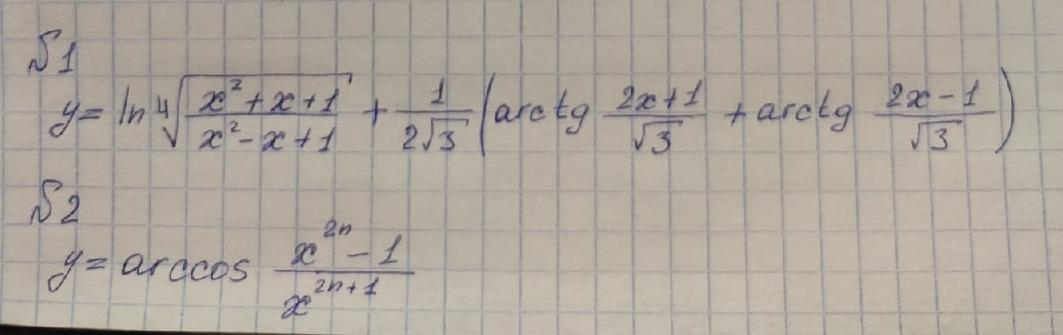 №1
y = ln ⁴√((x² + x + 1)/(x² - x + 1)) + 1/(2√3) (arctg (2x + 1)/√3 + arctg (2x - 1)/√3)
№2
y = arccos (x²ⁿ - 1)/(x²ⁿ⁺¹)